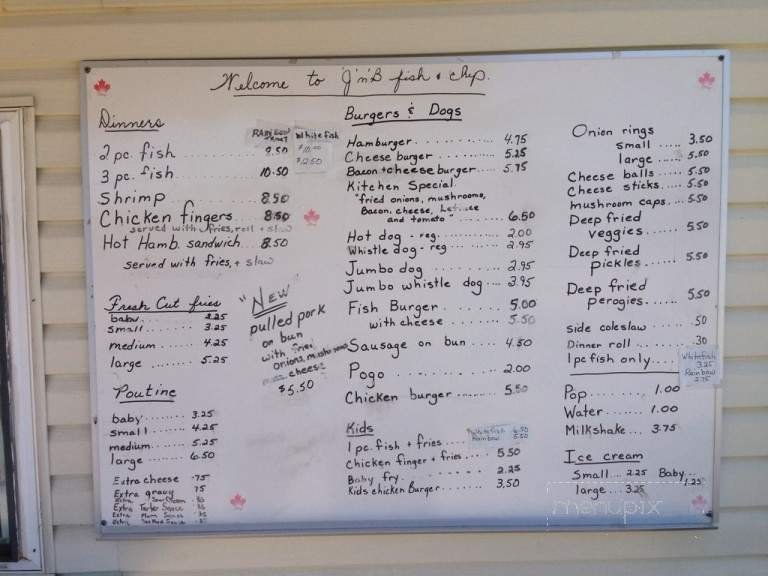 Welcome to J'n'B fish & chip.
Dinners
RAINBOW TROUT
White fish
2 pc. fish ........ 9.50 $10.00
3 pc. fish ........ 10.50 $12.50
Shrimp ........ 8.50
Chicken fingers 8.50
served with fries, roll + slaw
Hot Hamb. sandwich... 8.50
served with fries, + slaw
Fresh Cut fries
baby........ 2.25
small........ 3.25
medium........ 4.25
large........ 5.25
"NEW
pulled pork
on bun
with fried
onions, mushrooms
cheese
$5.50
Poutine
baby........ 3.25
small........ 4.25
medium........ 5.25
large........ 6.50
Extra cheese .75
Extra gravy .75
Extra Sour Cream .35
Extra Tarter Sauce .35
Extra Plum Sauce .35
Extra Seafood Sauce .35
Burgers & Dogs
Hamburger........ 4.75
Cheese burger........ 5.25
Bacon + cheese burger..... 5.75
Kitchen Special
"fried onions, mushrooms,
Bacon, cheese, Lettuce
and tomato"........ 6.50
Hot dog - reg........ 2.00
Whistle dog - reg........ 2.95
Jumbo dog........ 2.95
Jumbo whistle dog.... 3.95
Fish Burger........ 5.00
with cheese........ 5.50
Sausage on bun.... 4.50
Pogo........ 2.00
Chicken burger........ 5.50
Kids
1 pc. fish + fries.... Whitefish 6.50
Rainbow 5.50
Chicken finger + fries.... 5.50
Baby fry........ 2.25
Kids chicken Burger........ 3.50
Onion rings
small..... 3.50
large..... 5.50
Cheese balls..... 5.50
Cheese sticks..... 5.50
mushroom caps... 5.50
Deep fried
veggies..... 5.50
Deep fried
pickles..... 5.50
Deep fried
perogies..... 5.50
side coleslaw .50
Dinner roll.... .30
1 pc fish only.... Whitefish
3.25
Rainbow
2.75
Pop........ 1.00
Water........ 1.00
Milkshake.... 3.75
Ice cream
Small... 2.25 Baby.. 1.25
large.... 3.25
menupix